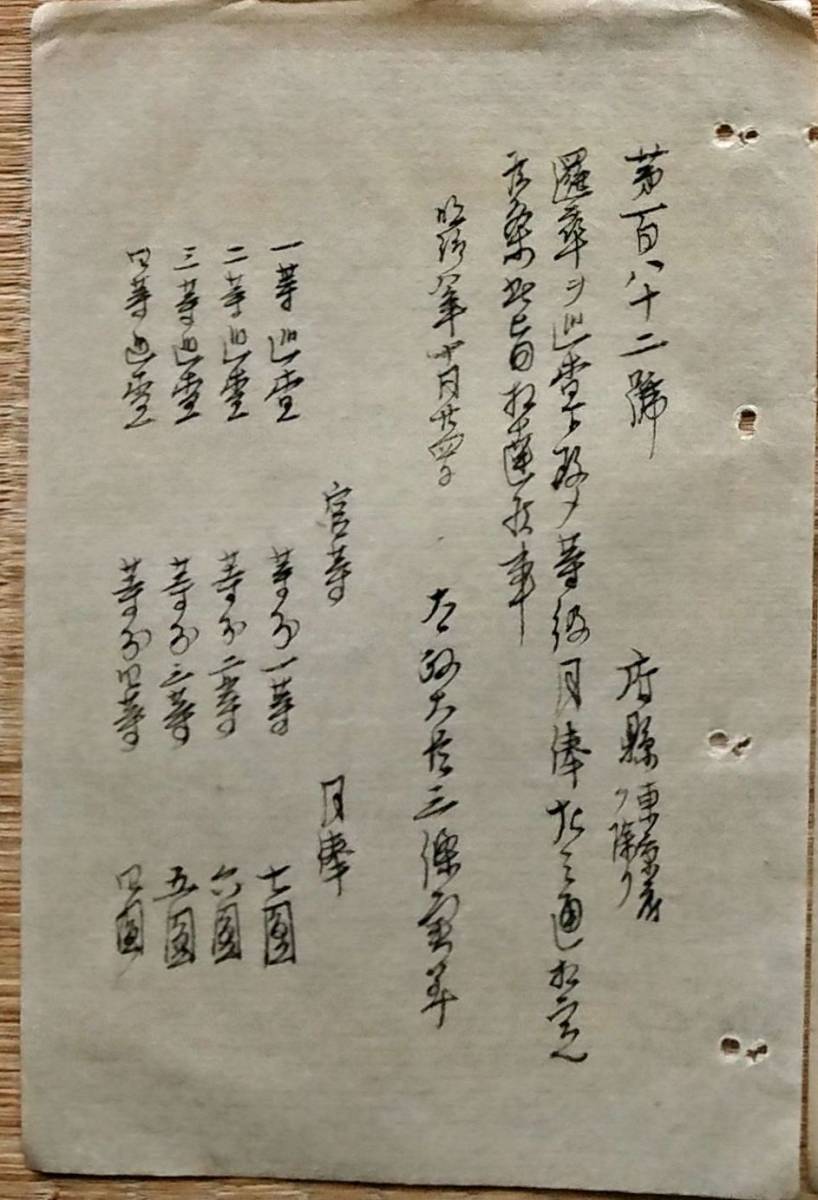 第百八十二號
府縣 東京府ヲ除ク
邏卒ヲ巡査ト改メ等級月俸左之通相定
候條此旨相達候事
明治八年十月廿四日
太政大臣三條實美
官等 月俸
一等巡査 等外一等 七圓
二等巡査 等外二等 六圓
三等巡査 等外三等 五圓
四等巡査 等外四等 四圓